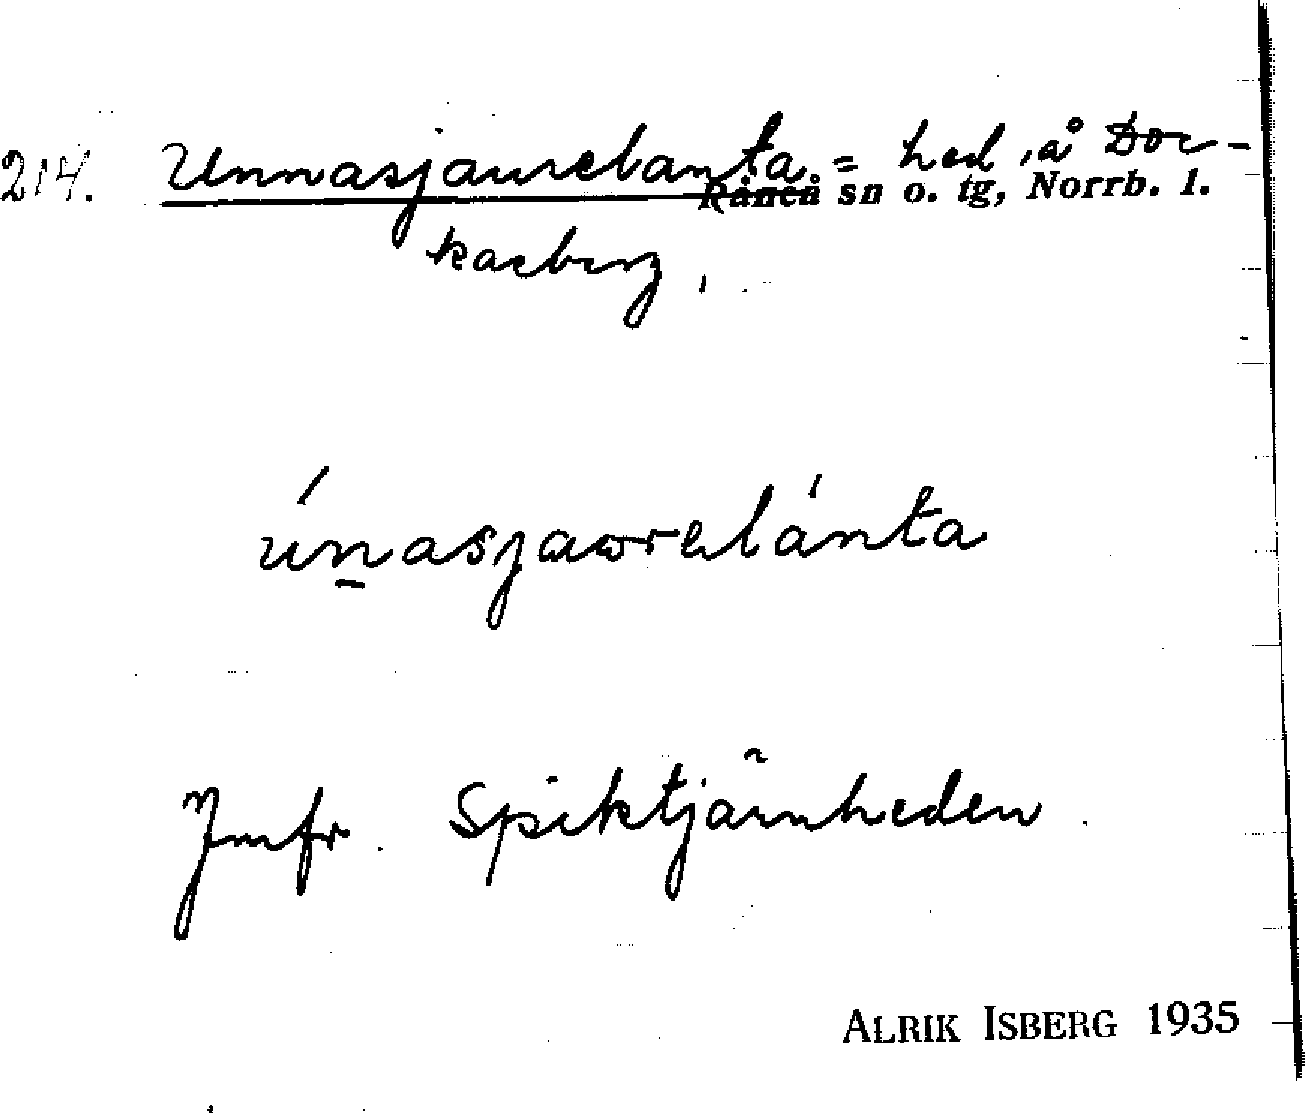 214. Unnasjaurelanta = hed å Doc-
Råneå sn o. tg, Norrb. l.
kasberg.
únasjaωrelánta
Jmfr. Spiktjärnheden.
ALRIK ISBERG 1935